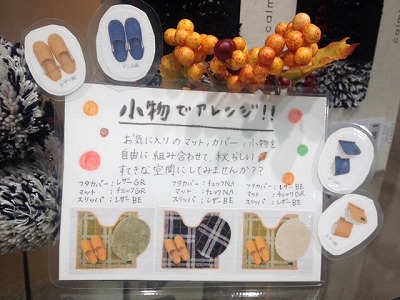 小物でアレンジ!!
お気に入りのマット,カバー,小物を
自由に組み合わせて、秋らしい
すてきな空間にしてみませんか??
フタカバー:レザーGR
マット:チェックGR
スリッパ:レザーBE
フタカバー:チェックNA
マット:チェックNA
スリッパ:レザーBE
フタカバー:レザーBE
マット:チェックGR
スリッパ:レザーBE
レザーBE
calm